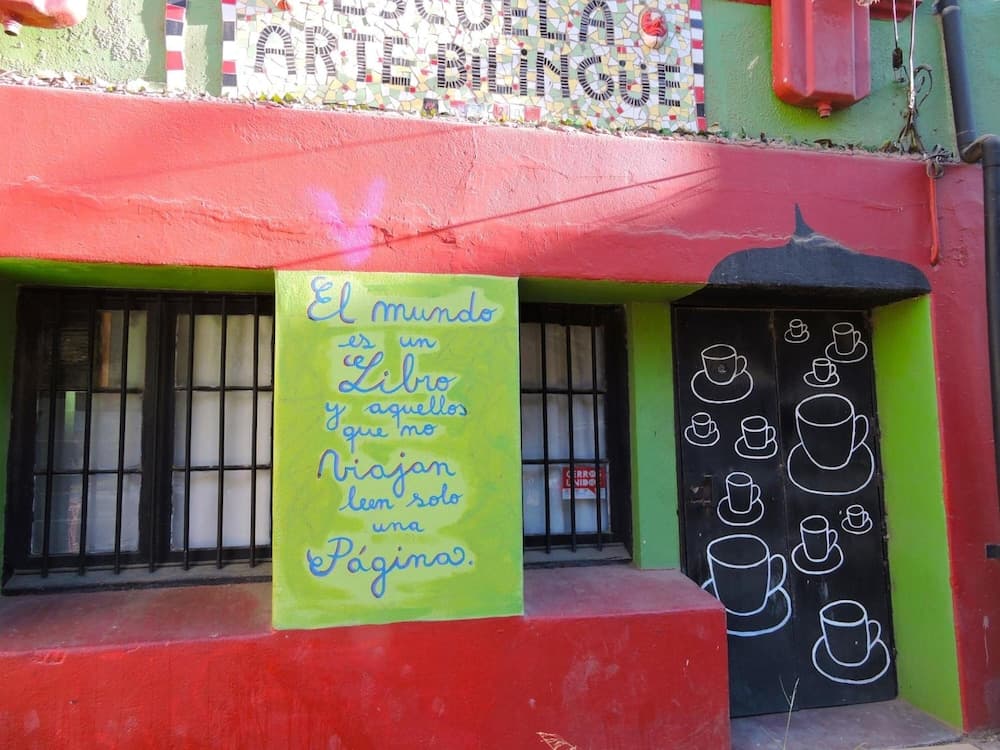 ESCUELA
ARTE BILINGÜE
El mundo
es un
Libro
y aquellos
que no
Viajan
leen solo
una
Página.
CERROS
UNIDOS